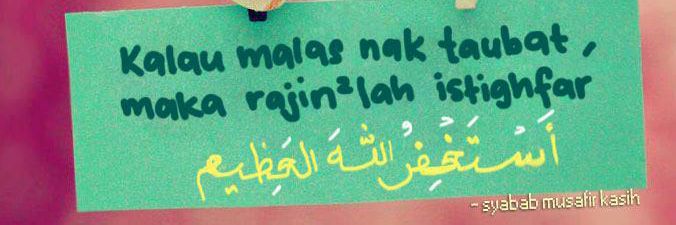 Kalau malas nak taubat,
maka rajin²lah istighfar
أَسْتَغْفِرُ اللَّهَ العَظِيم
- syabab musafir kasih